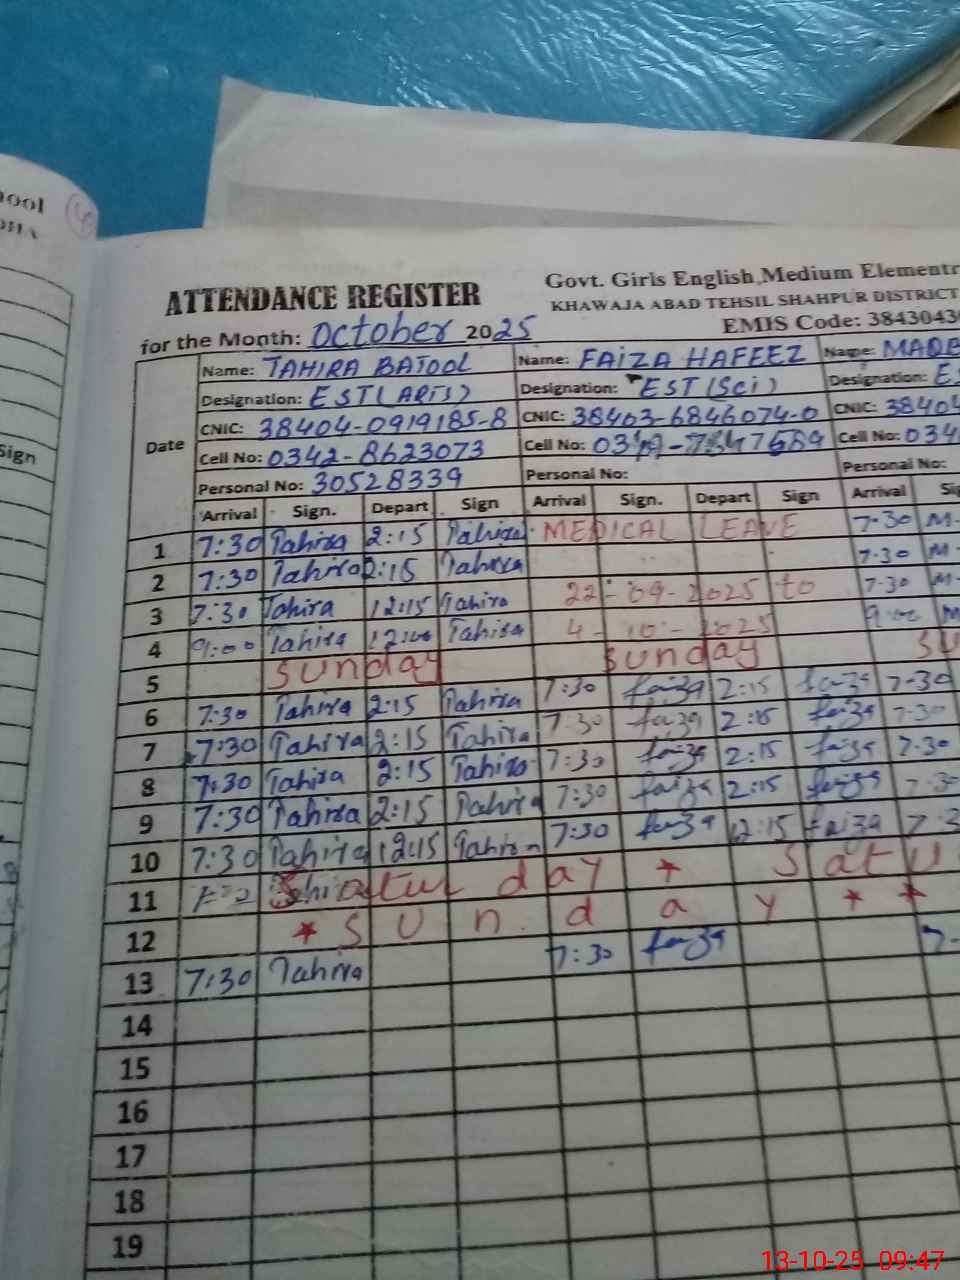 ool
DHA
Sign
ATTENDANCE REGISTER
Govt. Girls English Medium Elementr
KHAWAJA ABAD TEHSIL SHAHPUR DISTRICT
for the Month: October 2025
EMIS Code: 3843043
Date
Name: TAHIRA BATOOL Name: FAIZA HAFEEZ Name: MAQB
Designation: EST (ARTS) Designation: EST (Sci) Designation: ES
CNIC: 38404-0919185-8 CNIC: 38403-6846074-0 CNIC: 38404
Cell No: 0342-8623073 Cell No: Cell No: 034
Personal No: 30528339 Personal No: Personal No:
Arrival Sign. Depart Sign Arrival Sign. Depart Sign Arrival Si
1 7:30 Tahira 2:15 Tahira MEDICAL LEAVE 7-30 M-
2 7:30 Tahira 2:15 Tahira 7-30 M-
3 7:30 Tahira 12:15 Tahira 22-09-2025 to 7-30 M-
4 9:00 Tahira 12:00 Tahira 4-10-2025 9:00 M
5 Sunday Sunday Su
6 7:30 Tahira 2:15 Tahira 7:30 faiza 2:15 faiza 7-30
7 7:30 Tahira 2:15 Tahira 7:30 faiza 2:15 faiza 7-30
8 7:30 Tahira 2:15 Tahira 7:30 faiza 2:15 faiza 7-30
9 7:30 Tahira 2:15 Tahira 7:30 faiza 2:15 faiza 7-30
10 7:30 Tahira 12:15 Tahira 7:30 faiza 12:15 faiza 7-3
11 Saturday * Satu
12 * Sunday * *
13 7:30 Tahira 7:30 faiza 7-
14
15
16
17
18
19
13-10-25 09:47